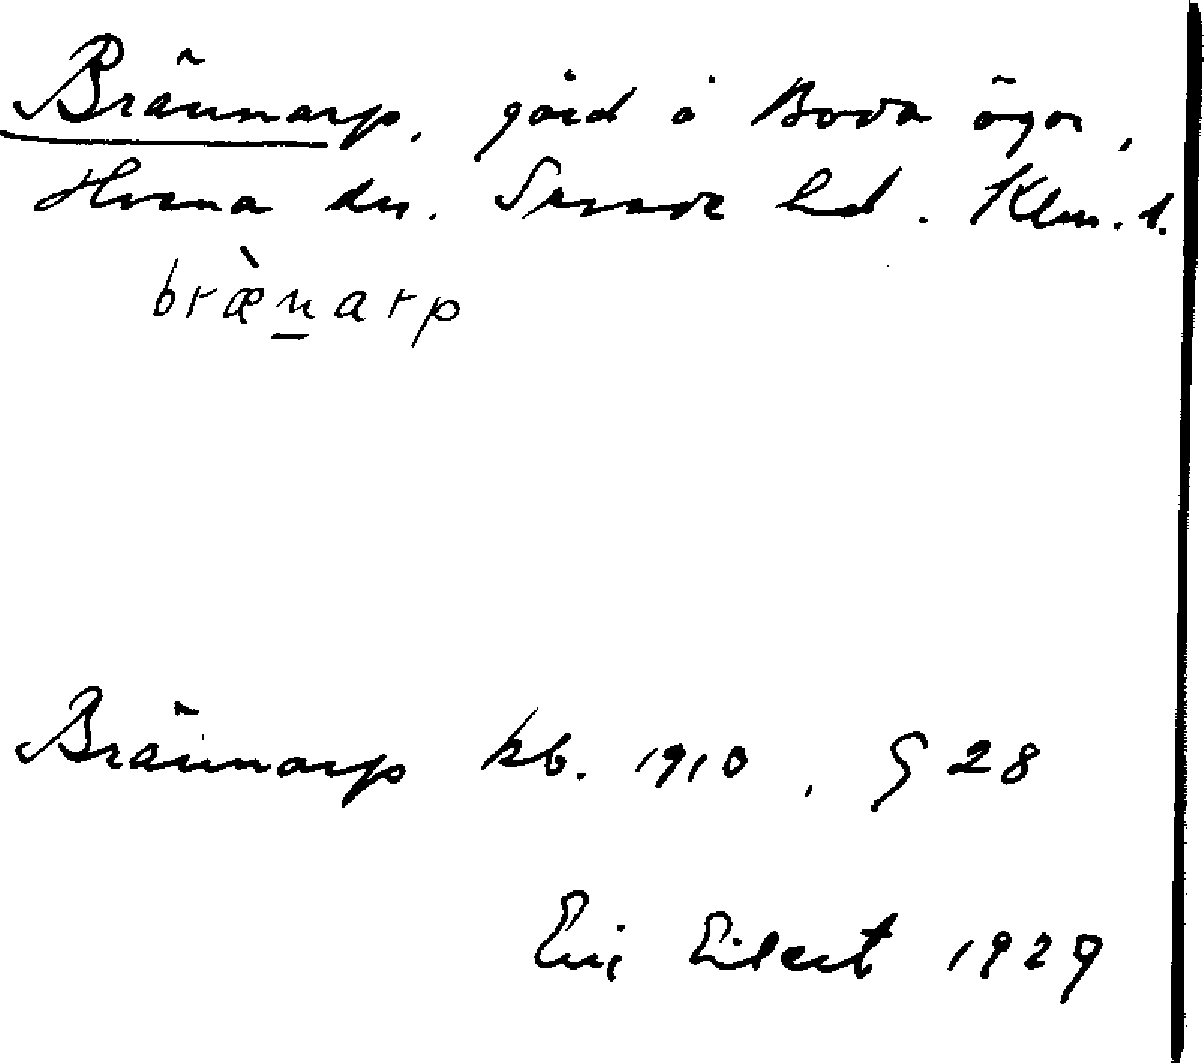 Brännarp, gård å Boda ägor,
Horna sn. Sevede hd. Klm. l.
bræ̀n̲arp
Brännarp kb. 1910, S 28
Eric Eilert 1929